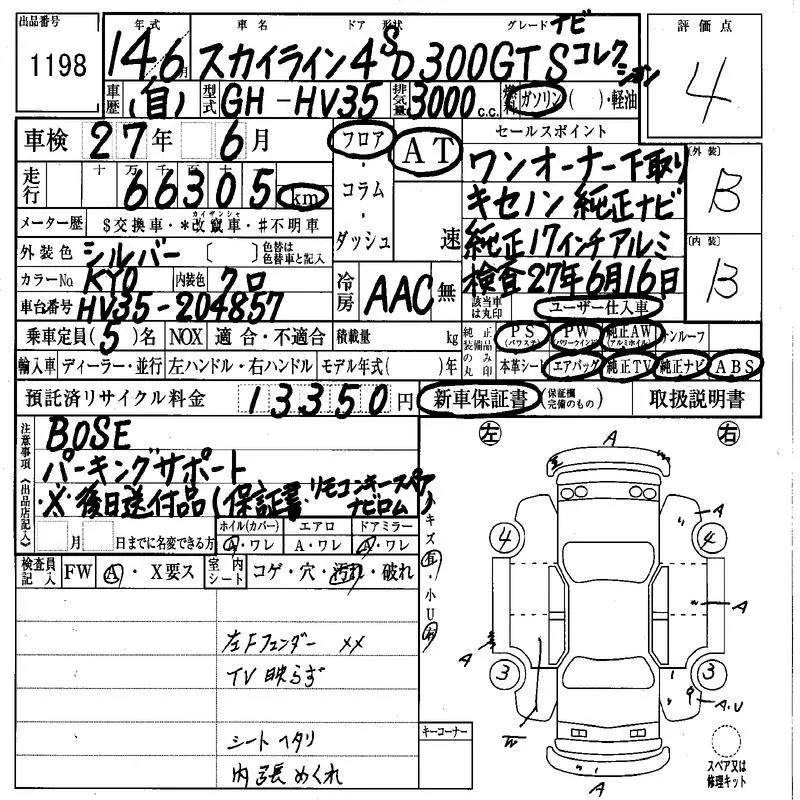 出品番号 年式 車名 ドア 形状 グレード ナビ 評価点
1198 14年6月 スカイライン 4 SD 300GT S コレクション 4
車歴 (自) 型式 GH-HV35 排気量 3000c.c. 燃料 ガソリン( )・軽油
車検 27年 6月 フロア AT セールスポイント 〔外装〕
走行 十 万 千 百 十 66305 km ・コラム・ ワンオーナー下取り B
メーター歴 $交換車・*改竄車・#不明車 カイザンシャ ダッシュ 速 キセノン 純正ナビ
外装色 シルバー 〔 〕色替は色替車と記入 純正17インチアルミ 〔内装〕
カラーNo KY0 内装色 クロ 冷房 AAC 無 検査27年6月16日 B
車台番号 HV35-204857 該当車は丸印 ユーザー仕入車
乗車定員(5)名 NOX 適合・不適合 積載量 kg 純正装備品のみ丸印 PS(パワステ) PW(パワーウインド) 純正AW(アルミホイル) サンルーフ
輸入車 ディーラー・並行 左ハンドル・右ハンドル モデル年式( )年 本革シート エアバッグ 純正TV 純正ナビ ABS
預託済リサイクル料金 13350円 新車保証書 (保証欄完備のもの) 取扱説明書
注意事項《出品店記入》 BOSE 左 A 右
パーキングサポート
※後日送付品(保証書・リモコンキースペア ナビロム)
月 日までに名変できる方 ホイル(カバー) A・ワレ エアロ A・ワレ ドアミラー A・ワレ
キズ 有・小U 有
検査員記入 FW A・X要ス 室内シート コゲ・穴・汚れ・破れ
4 4 A
A A
左Fフェンダー ××
TV映らず 3 3 A・U
W
シートヘタリ キーコーナー
内張めくれ A スペア又は修理キット